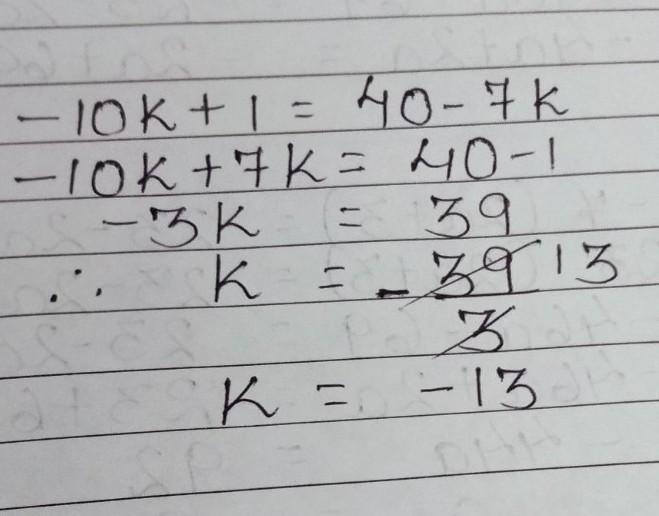 -10K+1 = 40-7K
-10K+7K = 40-1
-3K = 39
∴ K = -39 13
3
K = -13